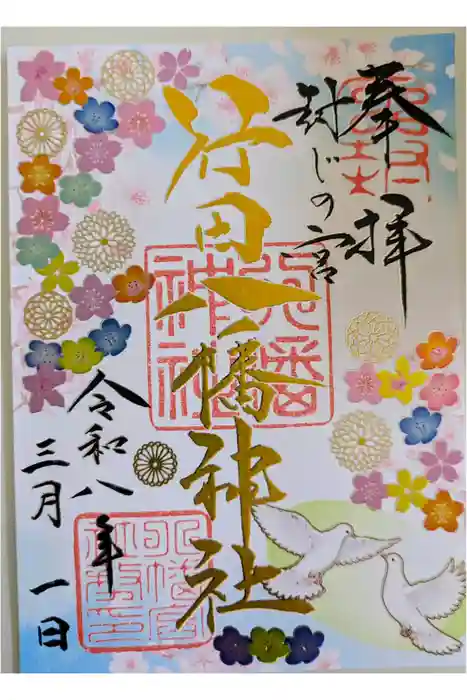 奉拝
封じの宮
行田八幡神社
八幡神社
令和八年
三月一日